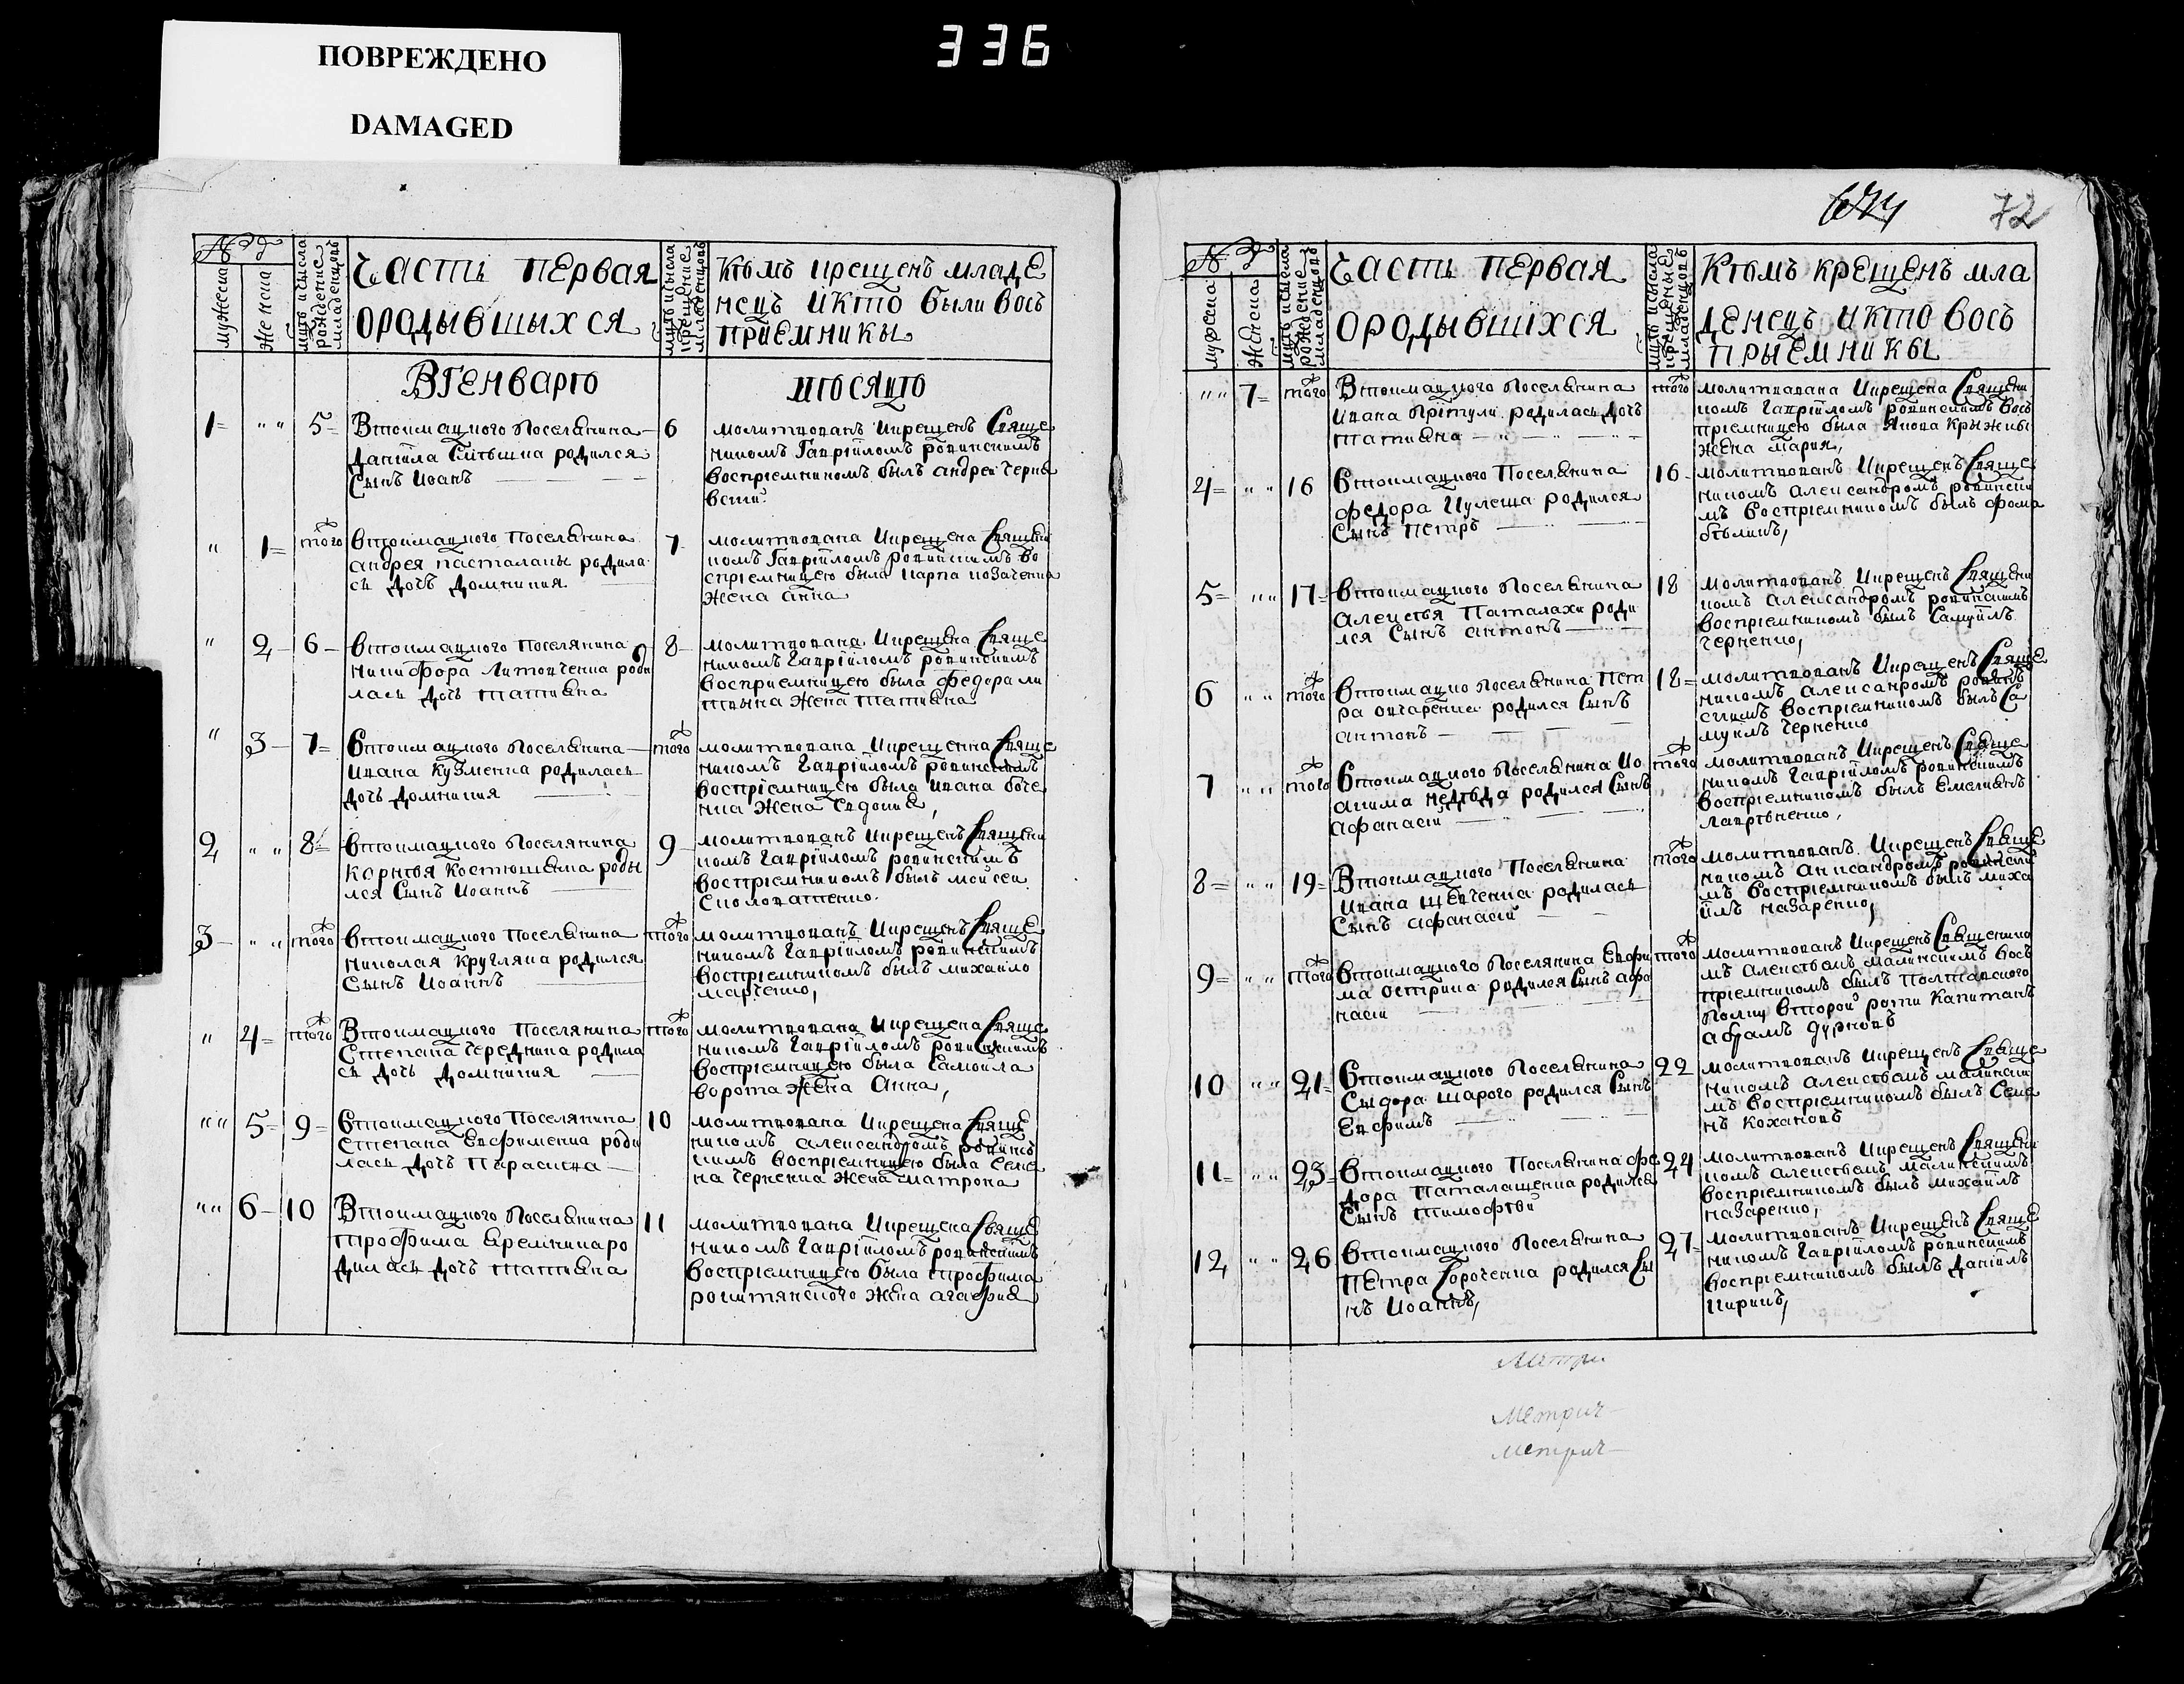 ПОВРЕЖДЕНО
DAMAGED
336
72
№
мужеска
женска
рождение
младенцовъ
Часть первая
ородывшыхся
крещение
младенцовъ
Кѣмъ крещенъ младе
нецъ икто были вось
приемникы
ВГенварѣ
мѣсяцѣ
1 5 Втоммацкого Поселянина 6
Данiила родился
Сынъ Иоанъ
молитвованъ икрещенъ Свяще
никомъ Гаврiиломъ ровинскимъ
воспрiемникомъ былъ андрей черне
1 того втоммацкого поселянина 7
андрея пасталаки родила
сь дочъ Домникия
молитвована икрещена Священ
икомъ Гаврiиломъ ровинскимъ во
спрiемницею была карпа козаченка
жена анна
2 6 втоммацкого поселянина 8
никифора литовченка роди
лась дочъ татияна
молитвована икрещена Свяще
никомъ Гаврiиломъ ровинскимъ
восприемницею была федора ли
жена татияна
3 7 втоммацкого поселянина того
ивана кузменка родилась
дочъ домникия
молитвована икрещенна Свяще
никомъ Гаврiиломъ ровинскимъ
воспрiемницею была ивана боче
нка жена евдокия,
2 8 втоммацкого поселянина 9
корнѣя костюшенка роды
лся сынъ иоаннъ
молитвованъ икрещенъ Священи
комъ Гаврiиломъ ровинскимъ
воспрiемникомъ былъ мойсеи
Споловатенко.
3 того втоммацкого поселянина того
николая кругляка родился
сынъ Иоаннъ
молитвованъ икрещенъ Свяще
никомъ Гаврiиломъ ровинскимъ
воспрiемникомъ былъ михаило
марченко,
4 того Втоммацкого Поселянина того
Степана Чередника родила
сь дочъ домникия
молитвована икрещена Свяще
никомъ Гаврiиломъ ровинскимъ
воспрiемницею была Самоила
ворота жена Анна,
5 9 втоммацкого Поселянина 10
степана Евфименка роди
лась дочъ параскева
молитвована икрещена Свяще
никомъ александромъ ровинс
кимъ воспрiемницею была семе
на черненка жена матрона
6 10 Втоммацкого Поселянина 11
трофима Еремички ро
дилась дочъ татияна
молитвована икрещена Свяще
никомъ Гаврiиломъ ровинскимъ
воспрiемницею была трофима
рокитянского жена агафия
№
мужеска
женска
рождение
младенцовъ
Часть первая
ородывшiхся
крещеные
младенцовъ
Кѣмъ крещенъ мла
денецъ икто вось
прыемникы
7 того Втоммацкого Поселянина того
ивана прiтули родилась дочъ
татияна
молитвована икрещена Священи
комъ Гаврiиломъ ровинскимъ вось
прiемницею была Якова крыжнъ
жена мария,
4 16 втоммацкого Поселянина 16
федора Кулеша родился
Сынъ Петръ
молитвованъ икрещенъ Свяще
никомъ александромъ ровински
мъ воспрiемникомъ былъ фома
бѣликъ,
5 17 втоммацкого Поселянина 18
алексѣя Паталахи роди
лся Сынъ антонъ
молитвованъ икрещенъ Священи
комъ александромъ ровинскимъ
воспрiемникомъ былъ Самуилъ
черненко,
6 того втоммацко Поселянина Пет 18
ра овчаренка родился Сынъ
антонъ
молитвованъ икрещенъ Свяще
никомъ алексанромъ ровинъ
скимъ воспрiемникомъ былъ Са
муилъ черненко
7 того втоммацкого Поселянина Ио того
акима недѣда родился сынъ
афанасiй
молитвованъ икрещенъ Свяще
никомъ Гаврiиломъ ровинскимъ
воспрiемникомъ былъ Емелиянъ
лаврѣненко,
8 19 Втоммацкого Поселянина того
ивана шевченка родилась
Сынъ афанасiй
молитвованъ икрещенъ Свяще
никомъ аликсандромъ ровински
мъ воспрiемникомъ былъ миха
илъ назаренко,
9 того втоммацкого Поселянина Евфи того
ма острика родился Сынъ афа
насiй
молитвованъ икрещенъ Священико
мъ алексѣемъ малинскимъ вось
прiемникомъ былъ Полтавского
полку второй роти капитанъ
абрамъ дурновъ
10 21 втоммацкого поселянина 22
Сыдора шарого родился Сынъ
Евфимъ
молитвованъ икрещенъ Свяще
никомъ алексѣемъ малински
мъ воспрiемникомъ былъ Семе
нъ кохановъ
11 23 втоммацкого Поселянина фе 24
дора паталащенка родился
Сынъ тимофѣй
молитвованъ икрещенъ Священи
комъ алексѣемъ малинскимъ
воспрiемникомъ былъ михаилъ
назаренко,
12 26 втоммацкого Поселянина 27
Петра Сороченка родился Сы
нъ Иоаннъ,
молитвованъ икрещенъ Свяще
никомъ Гаврiиломъ ровинскимъ
воспрiемникомъ былъ данiилъ
кирикъ,
Метри
Метрич
метрич